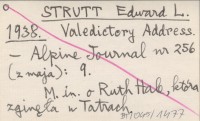 STRUTT Edward L.
1938. Valedictory Address.
— Alpine Journal nr 256
(z maja): 9.
M. in. o Ruth Hale, która
zginęła w Tatrach.